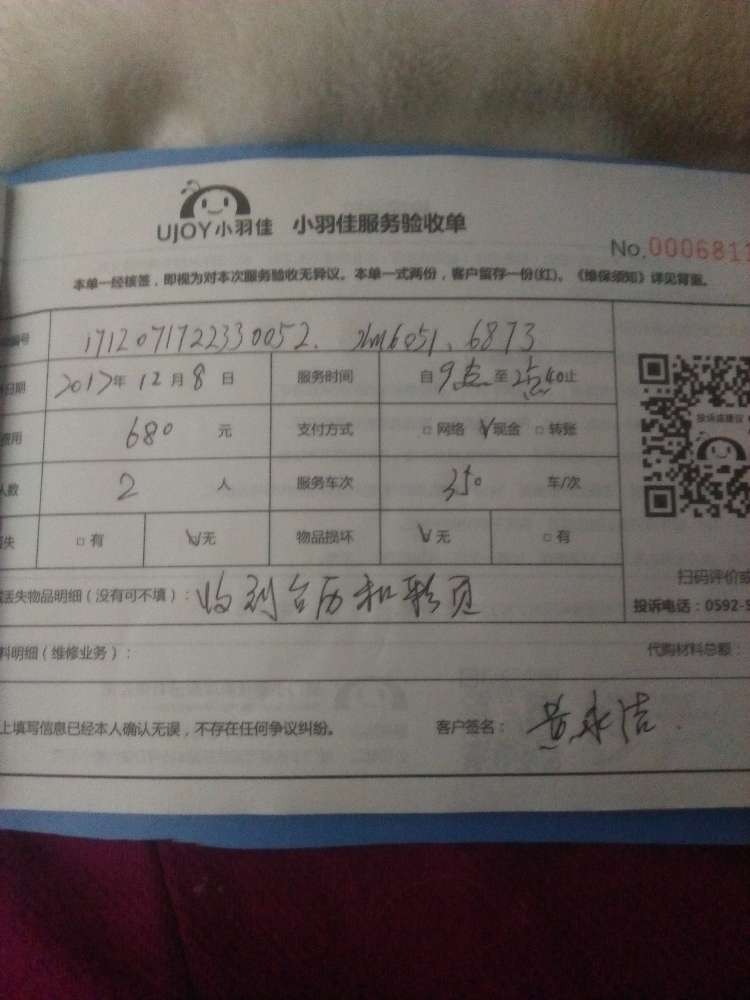 UJOY小羽佳 小羽佳服务验收单
No.0006811
本单一经核签，即视为对本次服务验收无异议。本单一式两份，客户留存一份(红)。《维保须知》详见背面。
编号 1712071722330052. 6051、6873
日期 2017年 12月 8日 服务时间 自9点至2点40止
费用 680 元 支付方式 □网络 √现金 □转账
人数 2 人 服务车次 350 车/次
失 □有 √无 物品损坏 √无 □有
投诉或建议
扫码评价或
丢失物品明细（没有可不填）： 收到台历和彩页
投诉电话：0592-5
料明细（维修业务）： 代购材料总额：
上填写信息已经本人确认无误，不存在任何争议纠纷。 客户签名： 黄永洁